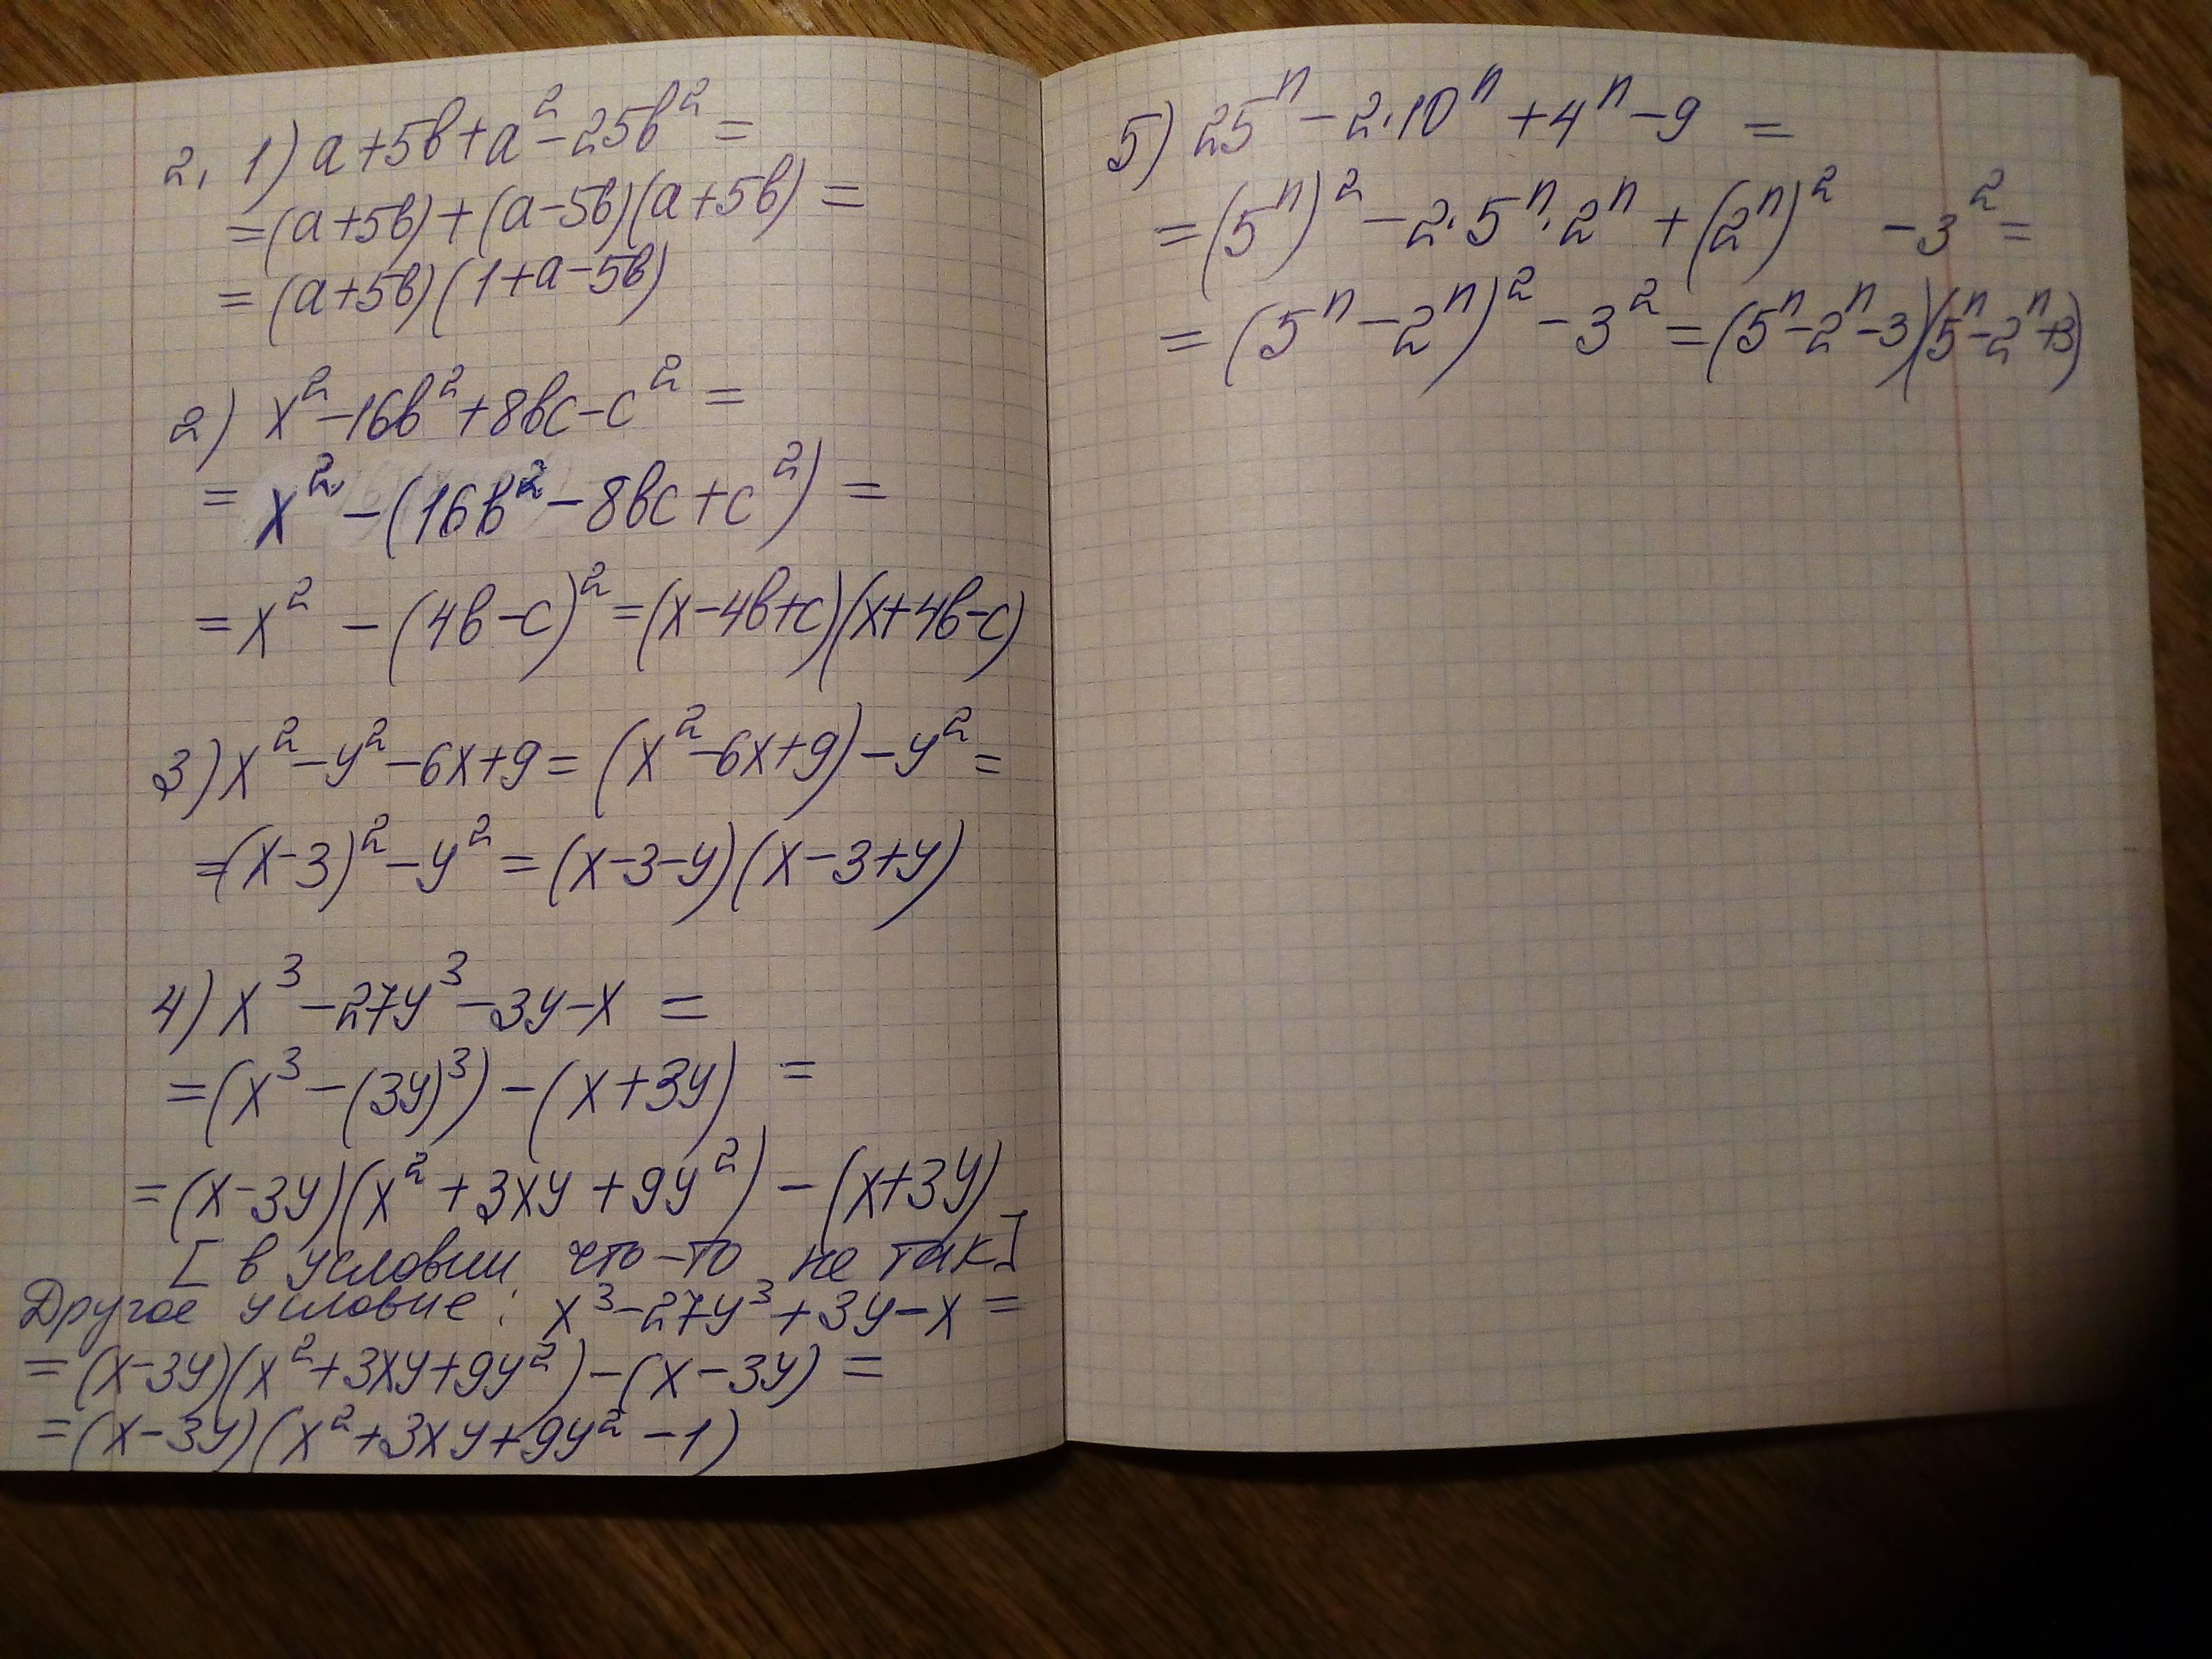 2. 1) a+5b+a²-25b²=
=(a+5b)+(a-5b)(a+5b)=
=(a+5b)(1+a-5b)
2) x²-16b²+8bc-c²=
= x²-(16b²-8bc+c²)=
=x² -(4b-c)²=(x-4b+c)(x+4b-c)
3) x²-y²-6x+9=(x²-6x+9)-y²=
=(x-3)²-y²=(x-3-y)(x-3+y)
4) x³-27y³-3y-x =
=(x³-(3y)³)-(x+3y) =
=(x-3y)(x²+3xy+9y²)-(x+3y)
[в условии что-то не так]
Другое условие: x³-27y³+3y-x=
=(x-3y)(x²+3xy+9y²)-(x-3y)=
=(x-3y)(x²+3xy+9y²-1)
5) 25ⁿ-2·10ⁿ+4ⁿ-9 =
=(5ⁿ)²-2·5ⁿ·2ⁿ+(2ⁿ)² -3²=
=(5ⁿ-2ⁿ)²-3²=(5ⁿ-2ⁿ-3)(5ⁿ-2ⁿ+3)